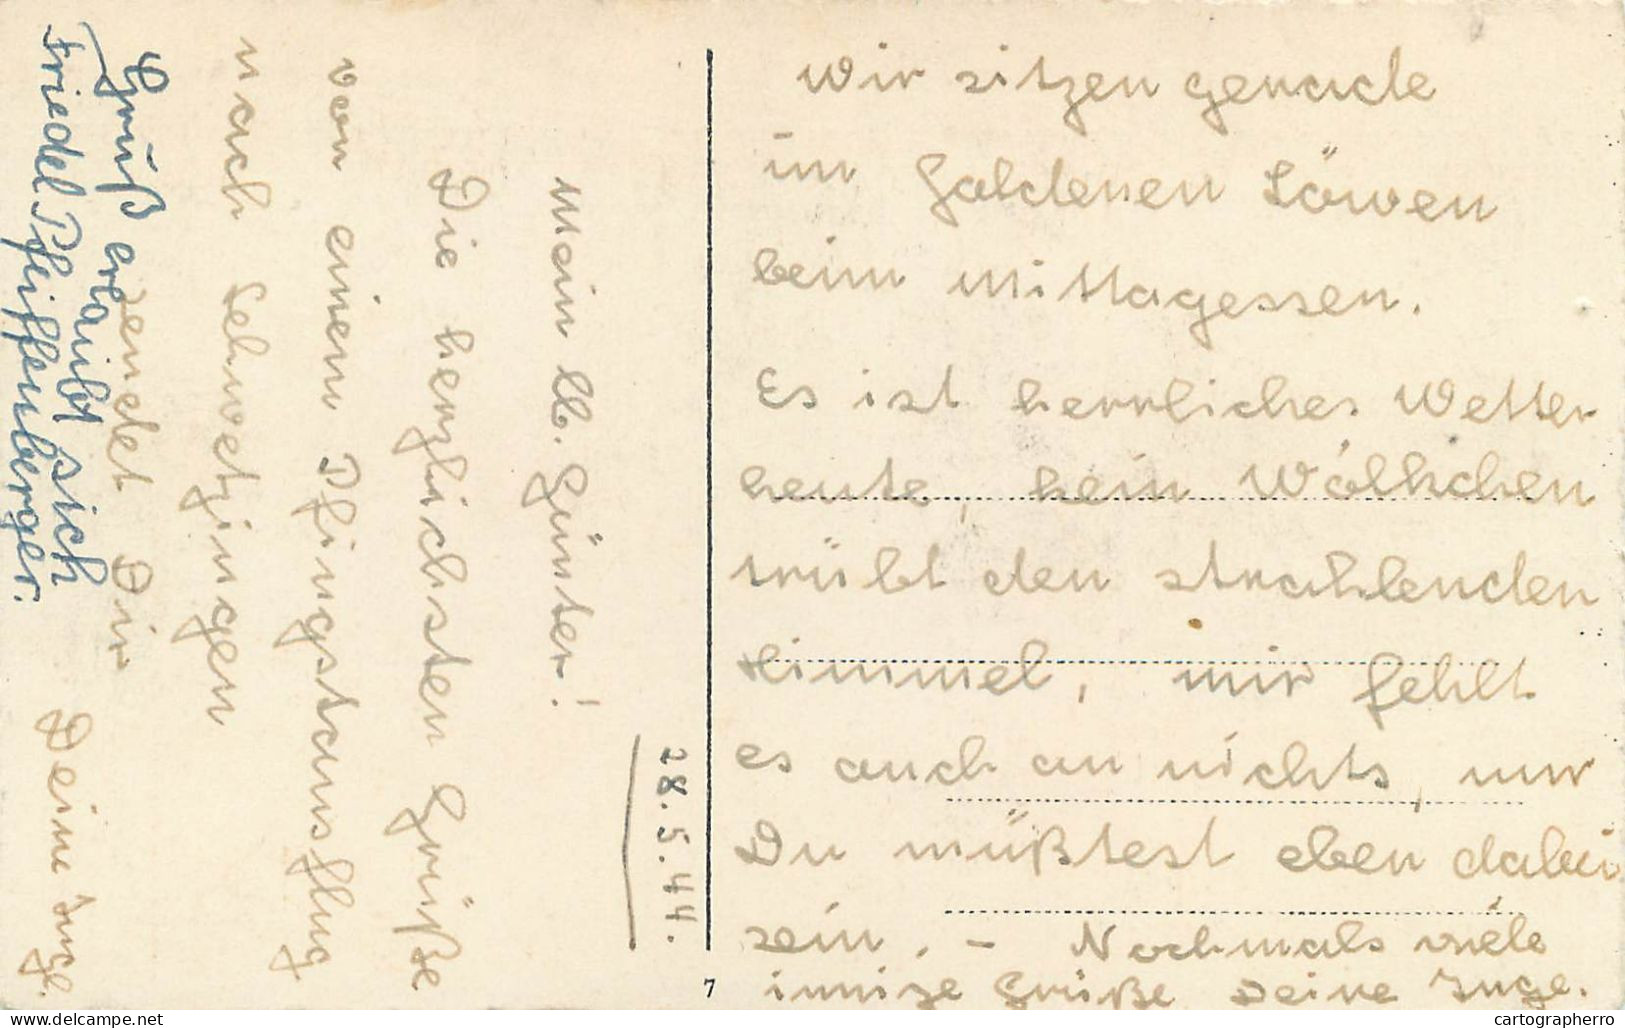 28.5.44.
Mein lb. Günter!
Die herzlichsten Grüße
von einem Pfingstausflug
nach Schwetzingen
sendet Dir
Deine Inge.
Gruß erlaubt sich
Friedel Pfiffenberger.
Wir sitzen gerade
im Goldenen Löwen
beim Mittagessen.
Es ist herrliches Wetter
heute, kein Wölkchen
trübt den strahlenden
Himmel, mir fehlt
es auch an nichts, nur
Du müßtest eben dabei
sein. – Nochmals viele
innige Grüße Deine Inge.
7
cartographerro